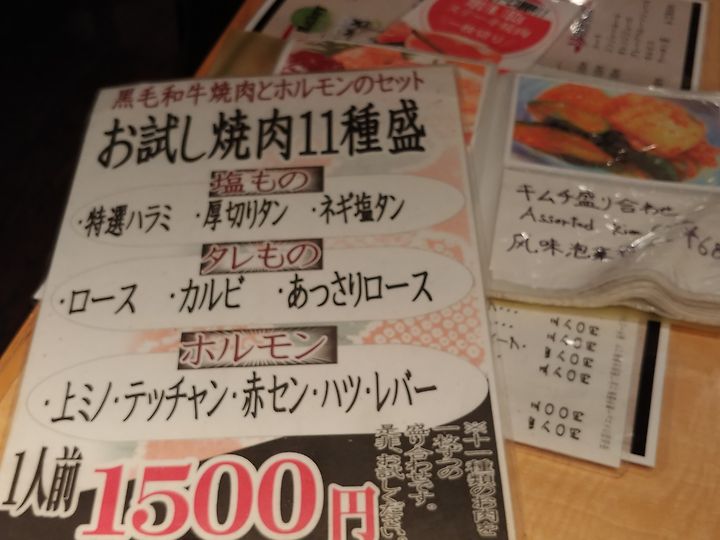 黒毛和牛焼肉とホルモンのセット
お試し焼肉11種盛
塩もの
・特選ハラミ ・厚切りタン ・ネギ塩タン
タレもの
・ロース ・カルビ ・あっさりロース
ホルモン
・上ミノ・テッチャン・赤セン・ハツ・レバー
1人前 1500円
※十一種類のお肉を
一枚ずつの
盛り合わせです。
是非、お試しください。
キムチ盛り合わせ
Assorted
¥68
風味泡菜
一枚切り